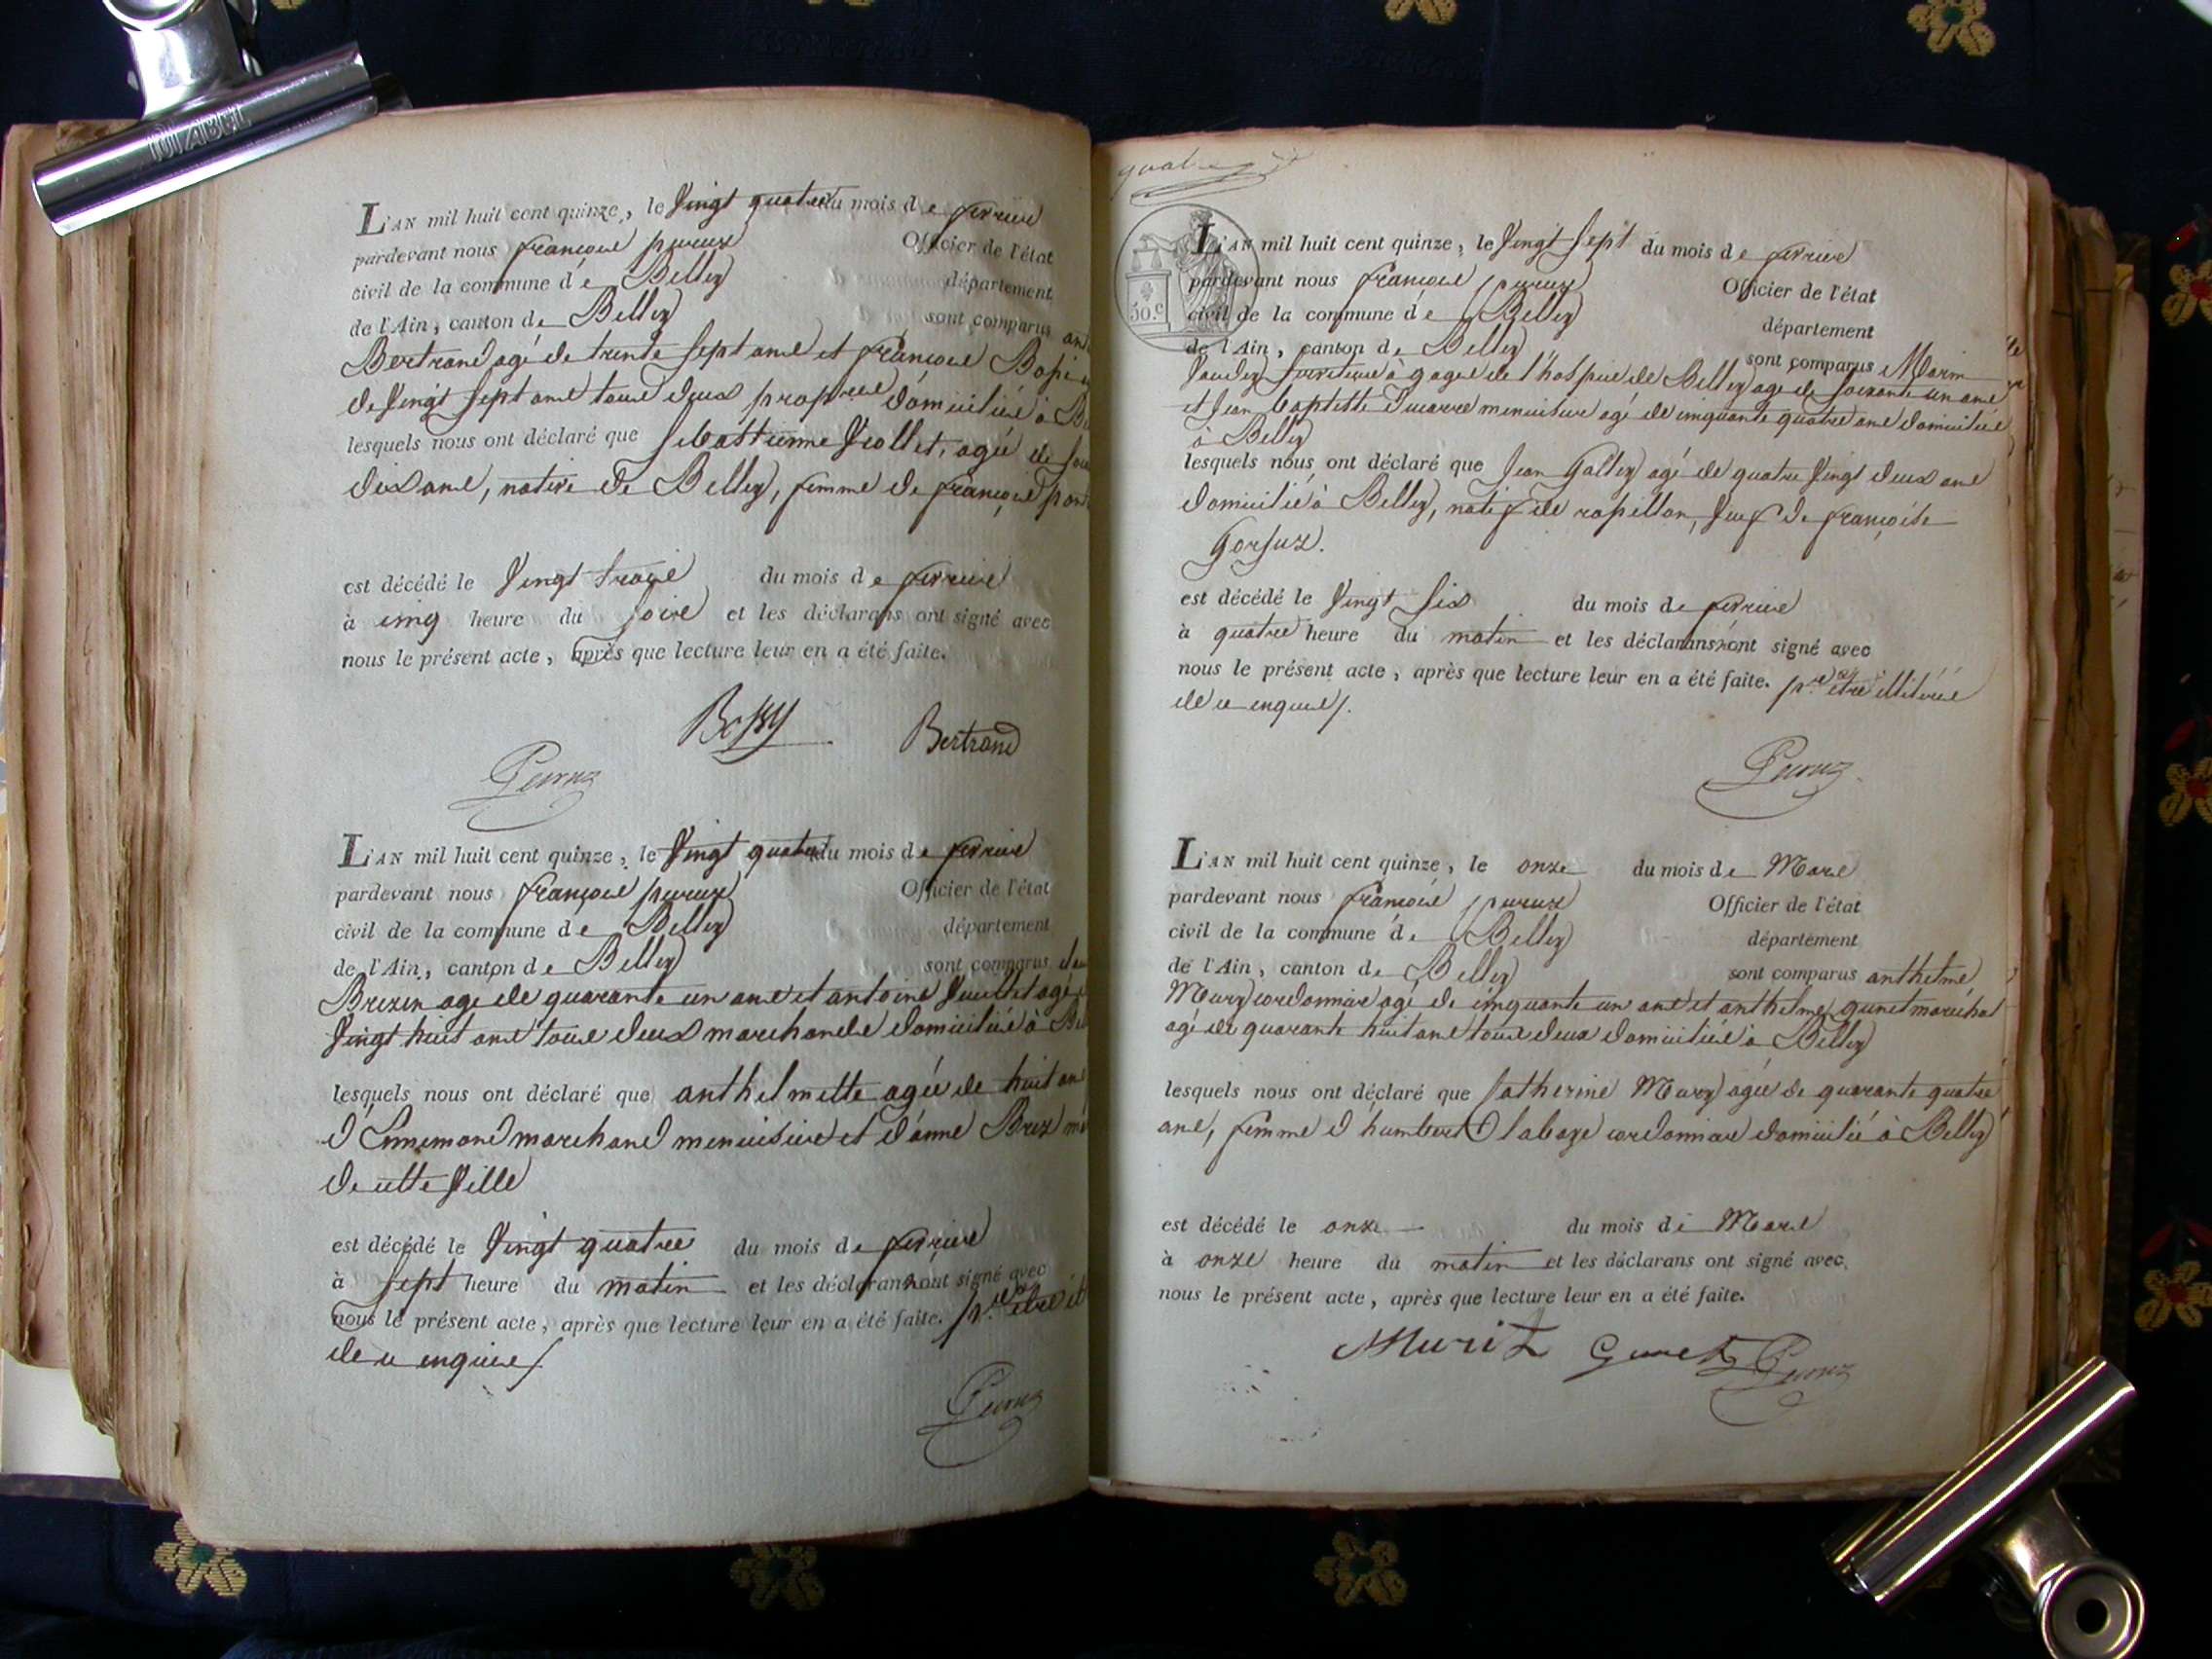 L'AN mil huit cent quinze, le Vingt quatre du mois de fevrier
pardevant nous françois peruz Officier de l'état
civil de la commune de Belley département
de l'Ain, canton de Belley sont comparus
Bertrand agé de trente sept ans et françois
de Vingt sept ans tous deux propres domiciliés à
lesquels nous ont déclaré que Sebastienne Viollet, agée de
dix ans, native de Belley, femme de françois
est décédé le Vingt trois du mois de fevrier
à cinq heure du Soir et les déclarans ont signé avec
nous le présent acte, après que lecture leur en a été faite.
Bertrand
Peruz
L'AN mil huit cent quinze, le Vingt quatre du mois de fevrier
pardevant nous françois peruz Officier de l'état
civil de la commune de Belley département
de l'Ain, canton de Belley sont comparus
agé de quarante un ans et antoine agé
Vingt huit ans tous deux marchands domiciliés à
lesquels nous ont déclaré que anthelmette agée de huit ans
d'Ennemond marchand menuisier et d'anne
de cette Ville
est décédé le Vingt quatre du mois de fevrier
à Sept heure du matin et les déclarans ont signé avec
nous le présent acte, après que lecture leur en a été faite. pr etre
de ce enquis/.
Peruz
50.c
L'AN mil huit cent quinze, le Vingt Sept du mois de fevrier
pardevant nous françois peruz Officier de l'état
civil de la commune de Belley département
de l'Ain, canton de Belley sont comparus Marin
à gages de l'hospice de Belley agé de Soixante un ans
et Jean baptiste menuisier agé de cinquante quatre ans domiciliés
à Belley
lesquels nous ont déclaré que Jean Galley agé de quatre Vingt deux ans
domicilié à Belley, natif de rossillon, Veuf de françoise
Gorjux.
est décédé le Vingt Six du mois de fevrier
à quatre heure du matin et les déclarans ont signé avec
nous le présent acte, après que lecture leur en a été faite. pr etre illiterés
de ce enquis/.
Peruz
L'AN mil huit cent quinze, le onze du mois de Mars
pardevant nous françois peruz Officier de l'état
civil de la commune de Belley département
de l'Ain, canton de Belley sont comparus anthelme
Mury cordonnier agé de cinquante un ans et anthelme gunet maréchal
agé de quarante huit ans tous deux domiciliés à Belley
lesquels nous ont déclaré que Catherine Mury agée de quarante quatre
ans, femme d'humbert cordonnier domicilié à Belley
est décédé le onze du mois de Mars
à onze heure du matin et les déclarans ont signé avec
nous le présent acte, après que lecture leur en a été faite.
Peruz